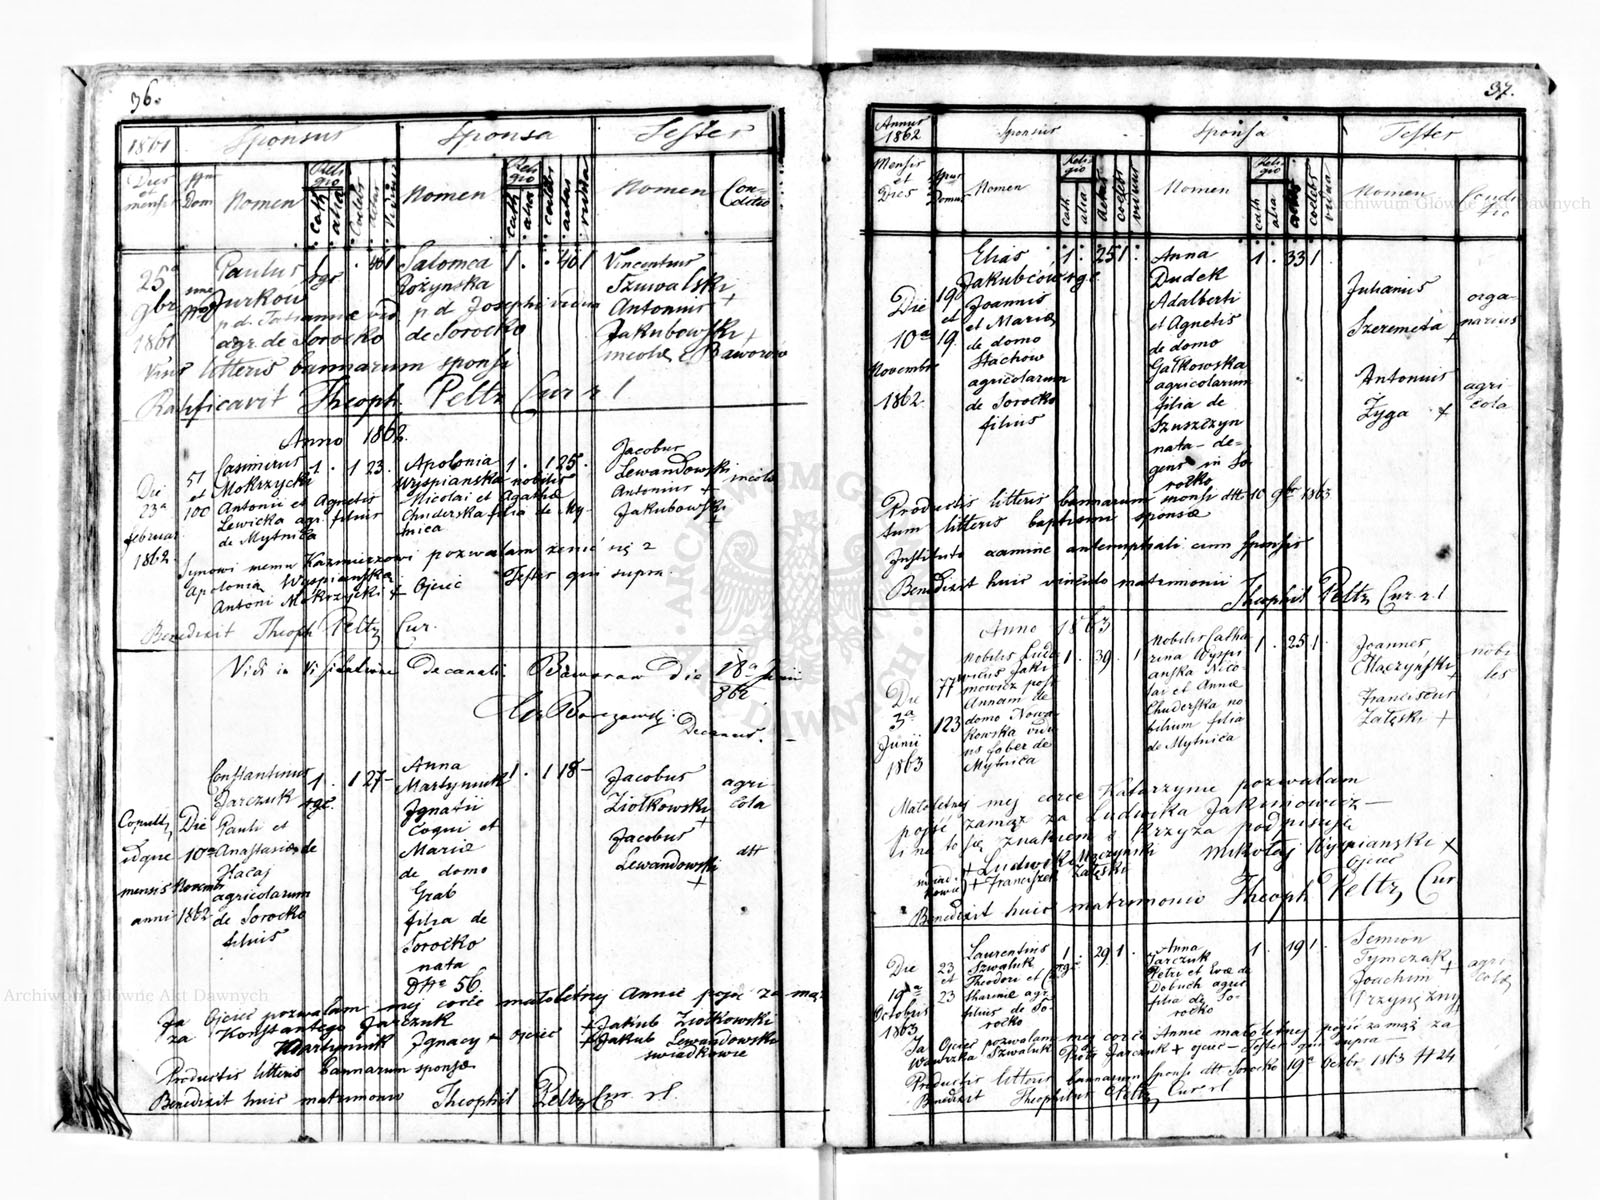 36.
1861 Sponsus Sponsa Testes
Dies et mensis Dom Nomen Religio cath. alia coelebs aetas viduus Nomen Religio cath. alia coelebs aetas vidua Nomen Conditio
25a 9br 1861
Paulus Jurków 1 rgr 40 1
p. d. vid
agr. de Sorocko
Salomea Rożynska 1. 40 1
p d Josephi vidua
de Sorocko
Vincentius
Szuwalski +
Antonius
Jakubowski +
incolae e Baworów
Visis litteris bannorum sponsi
Ratificavit Theoph. Peltz Cur r l
Anno 1862.
Die 23a februar. 1862
57 et 100
Casimirus 1. 1 23.
Mokrzycki
Antonii et Agnetis
Lewicka agr. filius
de Mytnica
Apolonia 1. 1 25.
Wyspianska nobilis
Nicolai et Agathae
Chuderska filia de My-
tnica
Jacobus
Lewandowski + incolae
Antonius
Jakubowski +
Synowi memu Kazimierzowi pozwalam żenić się z
Apolonią Wyspiańską
Antoni Mokrzycki + Ojciec Testes qui supra
Benedixit Theoph Peltz Cur.
Vidi in Visitatione Decanali. Baworow Die 18a Junii
862
Decanus.
Copult, Die
idque 10a
mensis Novembr
anni 1862
Constantinus 1. 1 27-
Jarczuk rgr.
Pauli et
Anastasiae de
Hacaj
agricolarum
de Sorocko
filius
Anna
Martyniuk 1. 1 18-
Ignatii
Coqui et
Mariae
de domo
Grab
filia de
Sorocko
nata
Dtto 56.
Jacobus agri
Ziołkowski + cola
Jacobus
Lewandowski dtt
+
Ja Ojciec pozwalam mej corce małoletnej Annie pojść za mąż
za Konstantego Jarczuk + Jakub Ziołkowski
Martyniuk Ignacy + ojciec + Jakub Lewandowski
swiadkowie
Productis litteris bannorum sponsae
Benedixit huic matrimonio Theophil Peltz Cur rl.
37.
Annus 1862 Sponsus Sponsa Testes
Mensis et Dies Domus Nomen Religio cath alia aetas coelebs viduus Nomen Religio cath alia aetas coelebs vidua Nomen Conditio
Die 10a Novembr 1862.
198 et 19.
Elias 1. 25 1.
Jakubców rgr.
Joannis
et Mariae
de domo
Stachow
agricolarum
de Sorocko
filius
Anna 1. 33 1
Dudek
Adalberti
et Agnetis
de domo
Gałkowska
agricolarum
filia de
Szuszczyn
nata - de=
gens in So
rocko
Julianus orga-
Szeremeta + narius
Antonius agri
Zyga + cola
Productis litteris bannorum sponsi dtt 10 9br 1863
tum litteris baptismi sponsae
Instituto examine antenuptiali cum sponsis
Benedixit huic vinculo matrimonii
Theophil Peltz Cur. r. l
Anno 1863
Die 3a Junii 1863
77 123
Nobilis Ludo 1. 39. 1
vicus Jaki
mowicz post
Annam de
domo Nowa
kowska vidu
us faber de
Mytnica
Nobilis Catha 1. 25 1.
rina Wyspi
anska Nico
lai et Annae
Chuderska no
bilium filia
de Mytnica
Joannes nobi
+ les
Franciscus
Załęski +
Małoletnej mej corce Katarzynie pozwalam
pojść zamąż za Ludwika Jakimowicz -
i na to się znakiem + Krzyża podpisuję
Mikołaj Wyspianski +
Ojciec
+ Franciszek Załęski
Benedixit huic matrimonio Theoph Peltz, Cur
Die 19a Octobris 1863
23 et 23
Laurentius 1. 29 1.
Szwaluk rgr
Theodori et
agr.
filius de So-
rocko
Anna 1. 19 1.
Jarczuk
Petri et Evae de
Dobuch agric
filia de So-
rocko
Semion
Tymczak + agri
Joachim colae
Przyneczny +
Ja Ojciec pozwalam mej corce Annie małoletnej pojść za mąż za
Wawrzka Szwaluk Piotr Jarczuk + ojciec - Testes qui supra
Productis litteris bannorum sponsi dtt Sorocko 19a Octobr 1863 # 24
Benedixit Theophilus Peltz, Cur rl
Archiwum Główne Akt Dawnych
Archiwum Główne Akt Dawnych